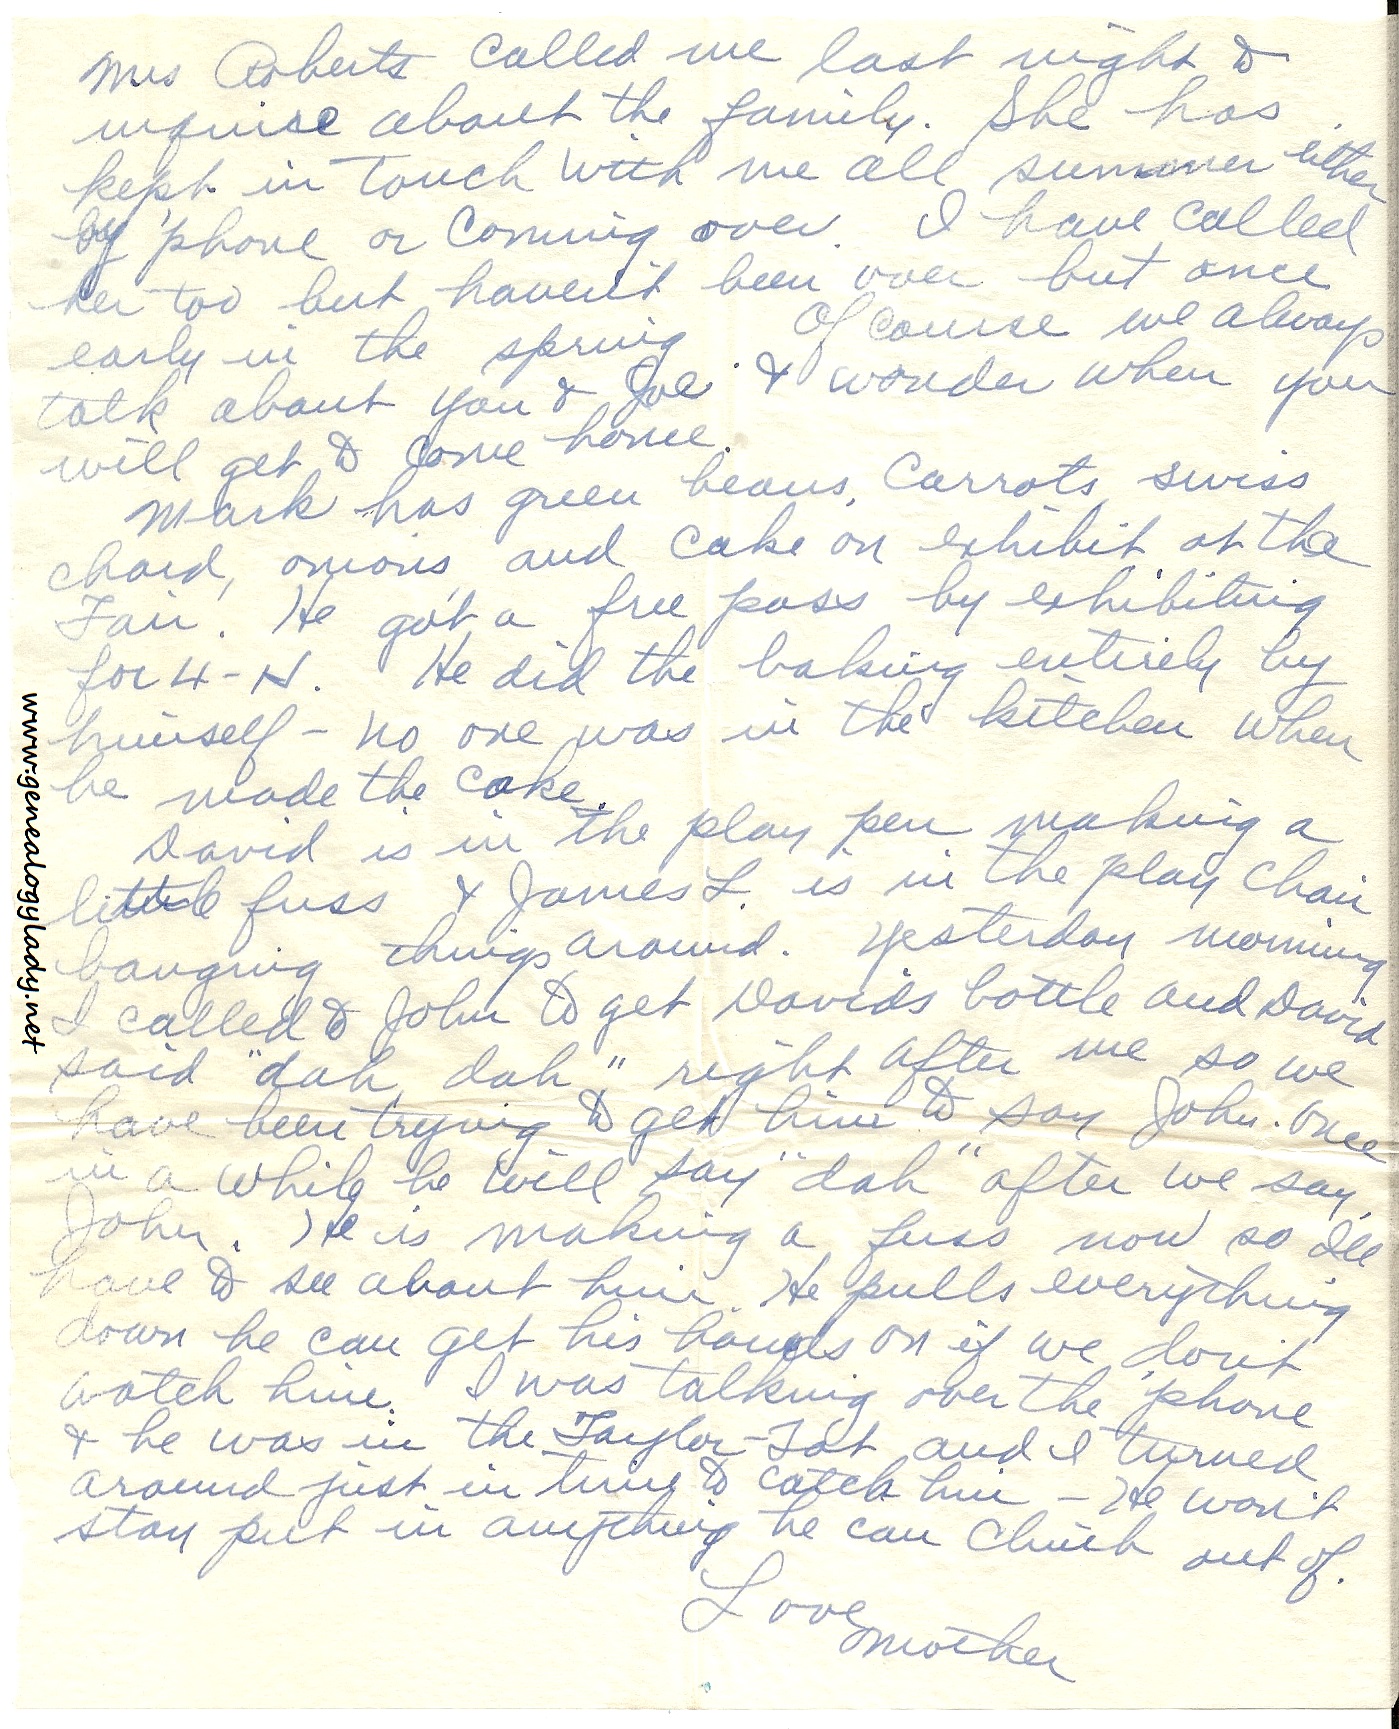 Mrs Roberts called me last night to
inquire about the family. She has
kept in touch with me all summer either
by 'phone or coming over. I have called
her too but haven't been over but once
early in the spring. Of course we always
talk about you & Joe & wonder when you
will get to come home.
Mark has green beans, carrots, swiss
chard, onions, and cake on exhibit at the
Fair. He got a free pass by exhibiting
for 4-H. He did the baking entirely by
himself - no one was in the kitchen when
he made the cake.
David is in the play pen making a
little fuss & James L. is in the play chair
banging things around. Yesterday morning
I called to John to get Davids bottle and David
said "dah, dah" right after me so we
have been trying to get him to say John. Once
in a while he will say "dah" after we say
John. He is making a fuss now so I'll
have to see about him. He pulls everything
down he can get his hands on if we don't
watch him. I was talking over the 'phone
& he was in the Taylor-Tot and I turned
around just in time to catch him - He won't
stay put in anything he can climb out of.
Love
Mother
www.genealogylady.net